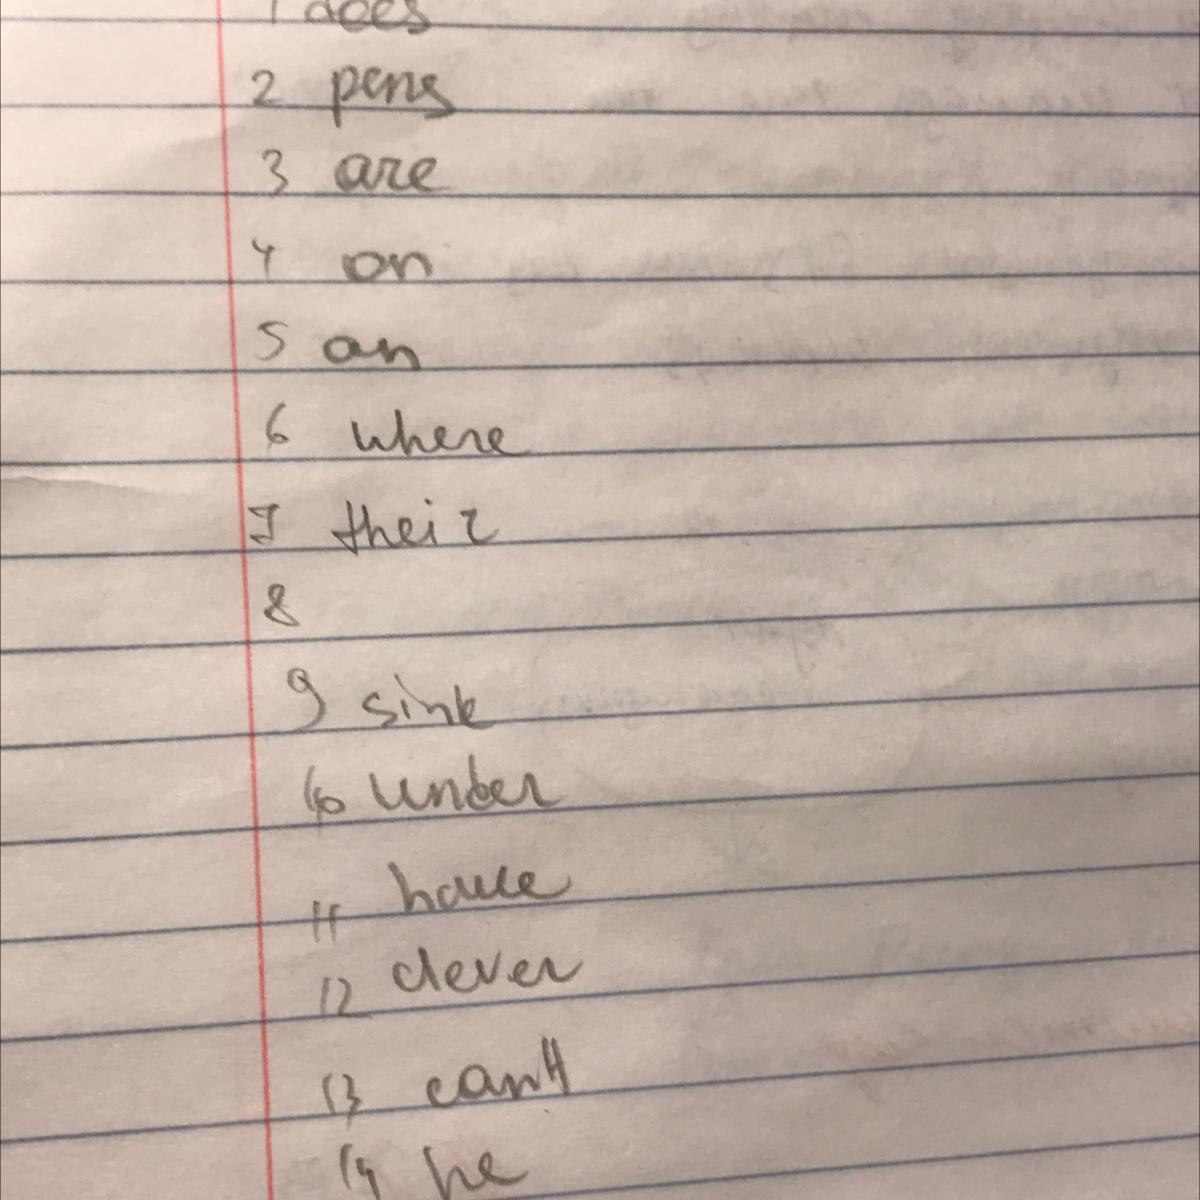 1 does
2 pens
3 are
4 on
5 an
6 where
7 their
8
9 sink
10 under
11 house
12 clever
13 can't
14 he